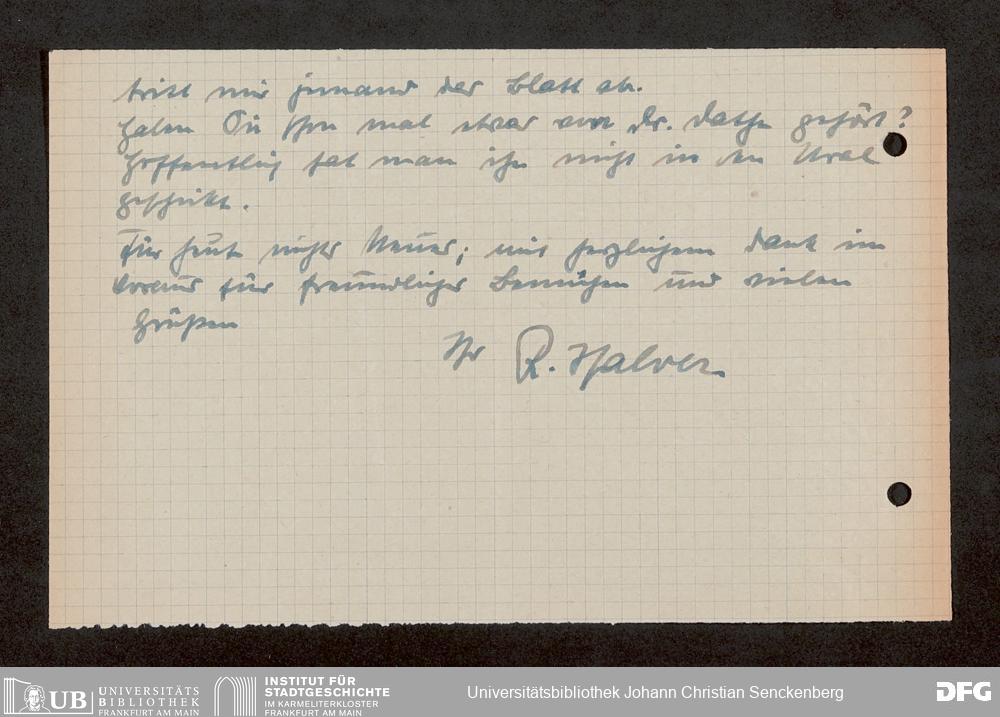 tritt mir jemand das Blatt ab.
Haben Sie schon mal etwas von Dr. Dathe gehört?
Hoffentlich hat man ihn nicht in den Ural
geschickt.
Für heute nichts Neues; mit herzlichem Dank im
voraus für freundliches Bemühen und vielen
Grüßen
Ihr R. Halver
UB UNIVERSITÄTS
BIBLIOTHEK
FRANKFURT AM MAIN
INSTITUT FÜR
STADTGESCHICHTE
IM KARMELITERKLOSTER
FRANKFURT AM MAIN
Universitätsbibliothek Johann Christian Senckenberg
DFG